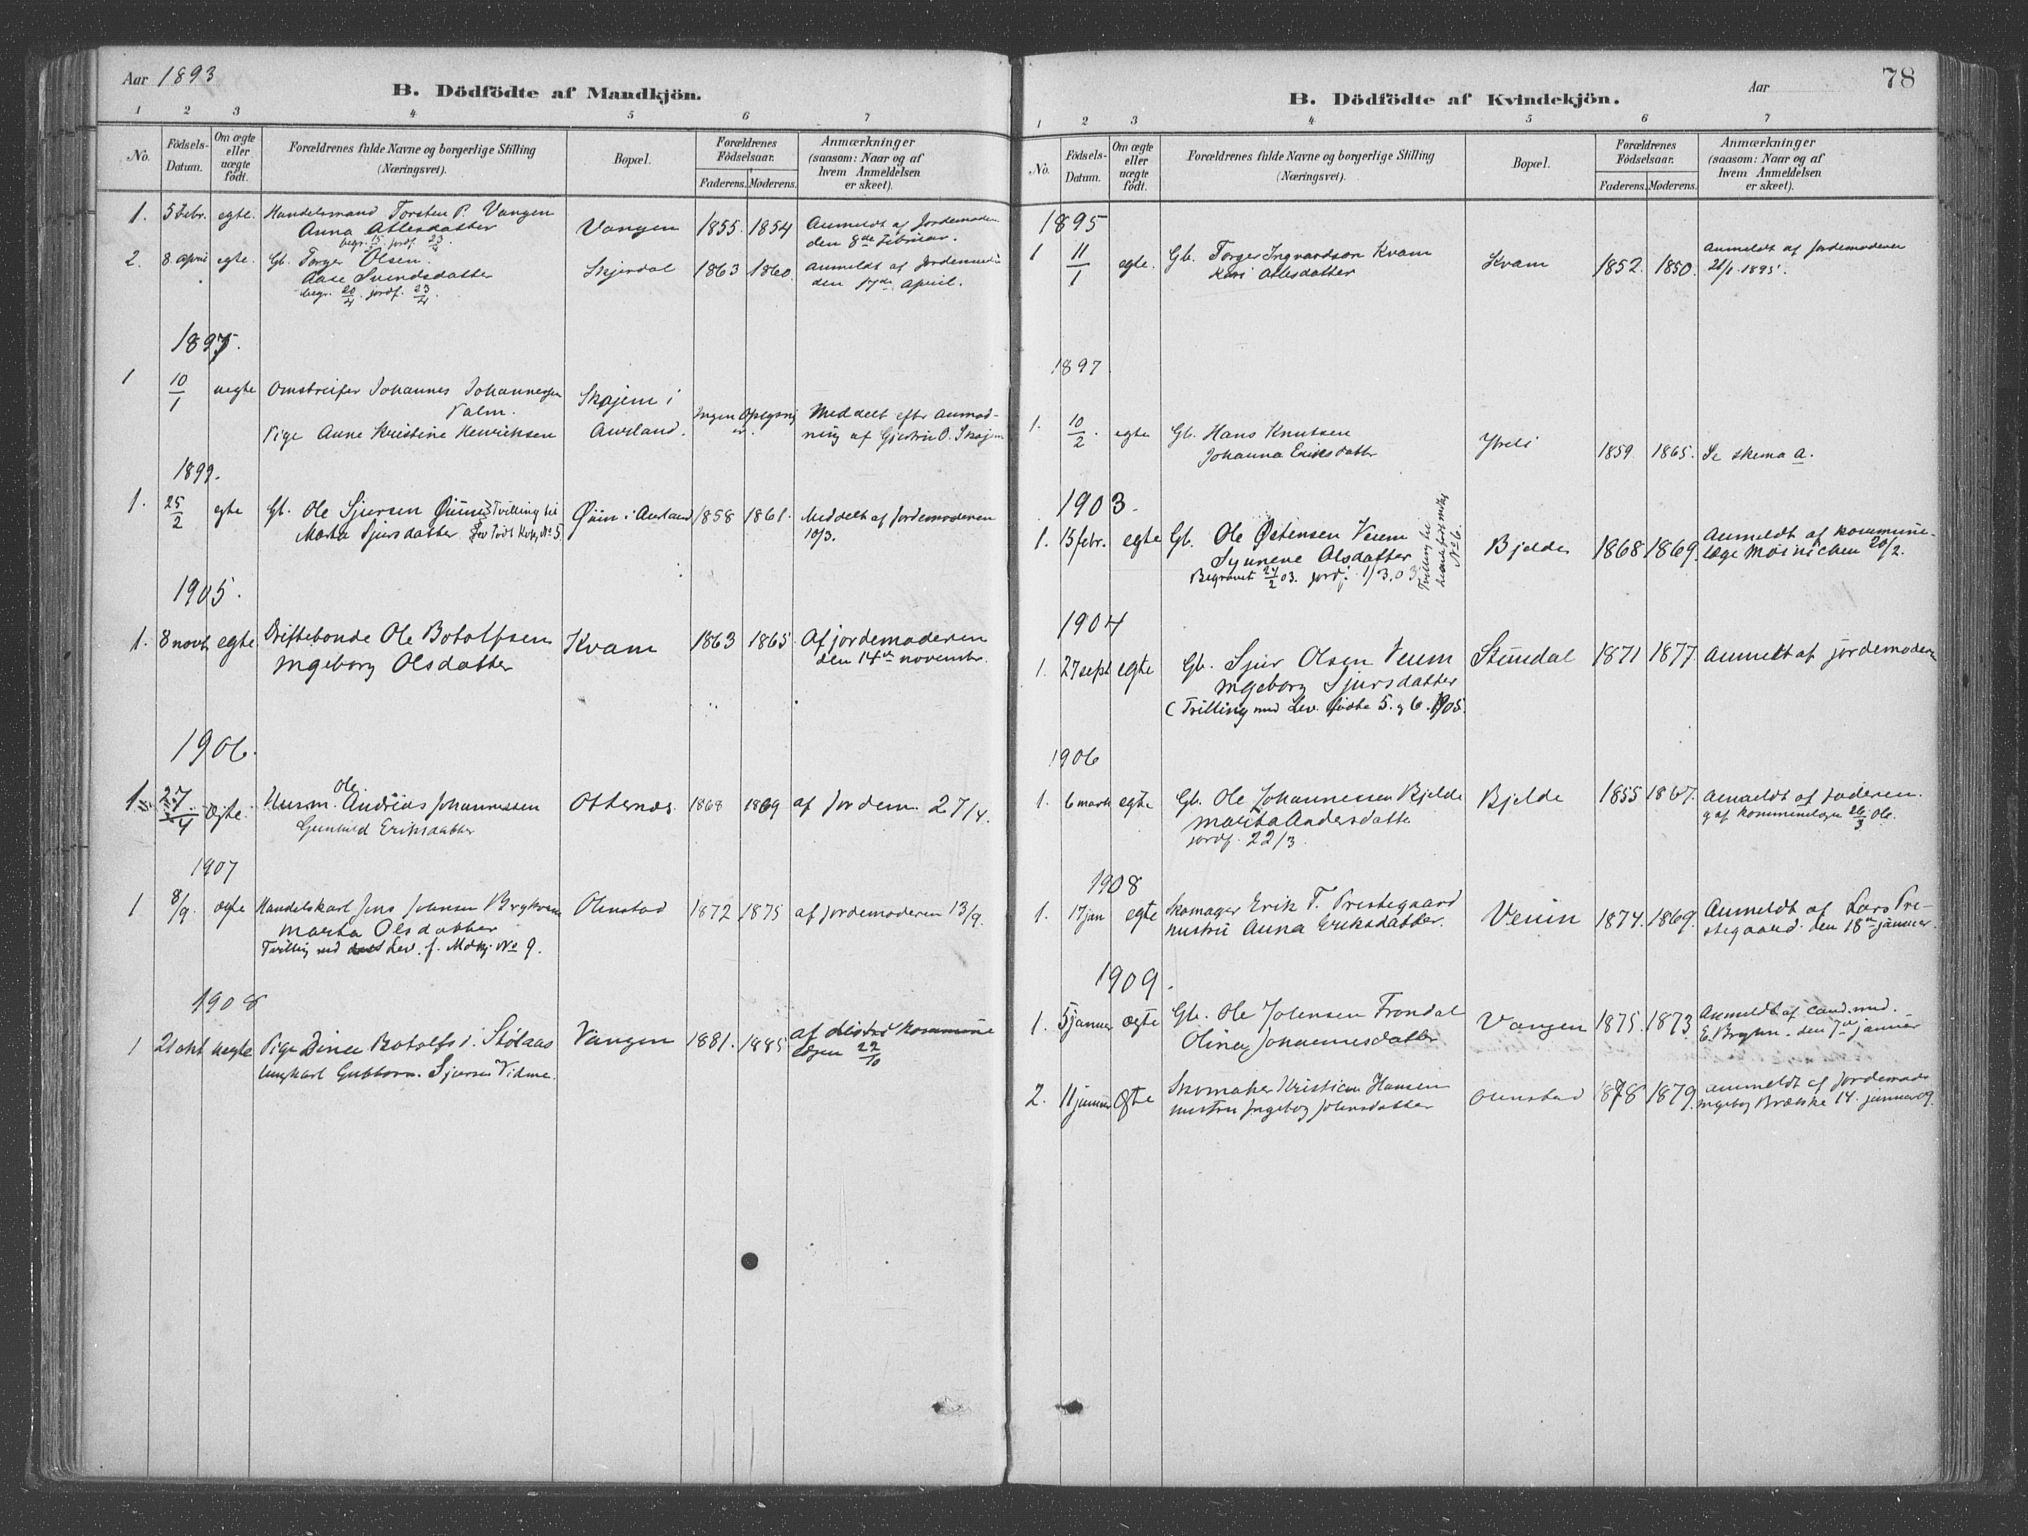 Aar 1893
B. Dödfödte af Mandkjön.
1 2 3 4 5 6 7
No. Födsels-Datum. Om ægte eller uægte födt. Forældrenes fulde Navne og borgerlige Stilling (Næringsvei). Bopæl. Forældrenes Födselsaar. Faderens. Moderens. Anmærkninger (saasom: Naar og af hvem Anmeldelsen er skeet).
1. 5 Febr. egte. Handelsmand Torsten P. Vangen Vangen 1855. 1854 Anmeldt af Jordemoderen
Anna Atlesdatter den 8de Februar.
begr. 15/2 jordf. 23/4.
2. 8 April egte. Gb. Torger Olsen. Skjerdal 1863 1860. Anmeldt af Jordemoderen
Aase Svendsdatter den 17de April.
begr. 20/4 jordf. 23/4
1897.
1 10/1 uegte Omstreifer Johannes Johannessen Skajem i Ingen Oplysning Meddelt efter Anmod-
Palm. Aurland. er. ning af Gjestrin O. Skajem
Pige Anne Kristine Henriksen
1899.
1. 25/2 egte Gb. Ole Sjursen Øium Tvilling til Øiin i Aurland 1858 1861. Meddelt af Jordemoderen
Marta Sjursdatter Lev. födt Kvk. No 5 10/3.
1905.
1. 8 novb egte Driftebonde Ole Botolfsen Kvam 1863 1865 Af jordemoderen
Ingeborg Olsdatter den 14de novembr.
1906.
1. 27/4 Ægte Husm. Ole Andreas Johannessen Otternes 1868 1869 af Jordem. 27/4.
Gunhild Eriksdatter
1907
1 8/9. ægte Handelskarl Jens Johnsen Brykvam Olenstad 1872 1875 af Jordemoderen 13/9.
Marta Olsdatter
Tvilling med Lev. f. Mdkj. No 9.
1908
1 21 okt uegte Pige Dina Botolfs i. Stølaas Vangen 1881. 1885 af kommune
Ungkarl Guttorm Sjursen Vidme. lægen 22/10
78
Aar
B. Dödfödte af Kvindekjön.
1 2 3 4 5 6 7
No. Födsels-Datum. Om ægte eller uægte födt. Forældrenes fulde Navne og borgerlige Stilling (Næringsvei). Bopæl. Forældrenes Födselsaar. Faderens. Moderens. Anmærkninger (saasom: Naar og af hvem Anmeldelsen er skeet).
1895
1 11/1 egte. Gb. Torger Ingvardson Kvam Kvam 1852. 1850. Anmeldt af Jordemoderen
Kari Atlesdatter 21/1 1895.
1897
1. 10/2. egte Gb. Hans Knutsen 1859 1865. Se skema a.
Johanna Eriksdatter
1903.
1. 15 febr. egte Gb. Ole Østensen Veum Bjelde 1868 1869. Anmeldt af kommune-
Synneve Olsdatter læge Mosnichen 20/2.
Begravet 24/2 03. jordf. 1/3.03
Tvilling til levendef. mdkj. No 6.
1904
1. 27 sept egte Gb. Sjur Olsen Veum Stundal 1871 1877. Anmeldt af jordemoderen
Ingeborg Sjursdatter
(Trilling med Lev. födte 5. og 6. 1905.
1906
1. 6 marts egte Gb. Ole Johannessen Bjelde Bjelde 1855 1867. Anmeldt af faderen.
Marita Andersdatter og af kommunelægen 26/3 06.
jordf. 22/3
1908
1. 17 jan egte Skomager Erik T. Prestegaard Veum 1874. 1869. Anmeldt af Lars Pre-
hustru Anna Eriksdatter. stegaard. den 18de januar.
1909.
1. 5 januar ægte Gb. Ole Johnsen Frondal Vangen 1875. 1873 Anmeldt af cand. med.
Olina Johannesdatter E. Bryhn. den 7de januar
2. 11 januar Ægte Skomaker Kristian Hansen Olenstad 1878 1879. anmeldt af Jordemoder
hustru Ingeborg Johnsdatter Ingeborg Brække 14. januar 09.